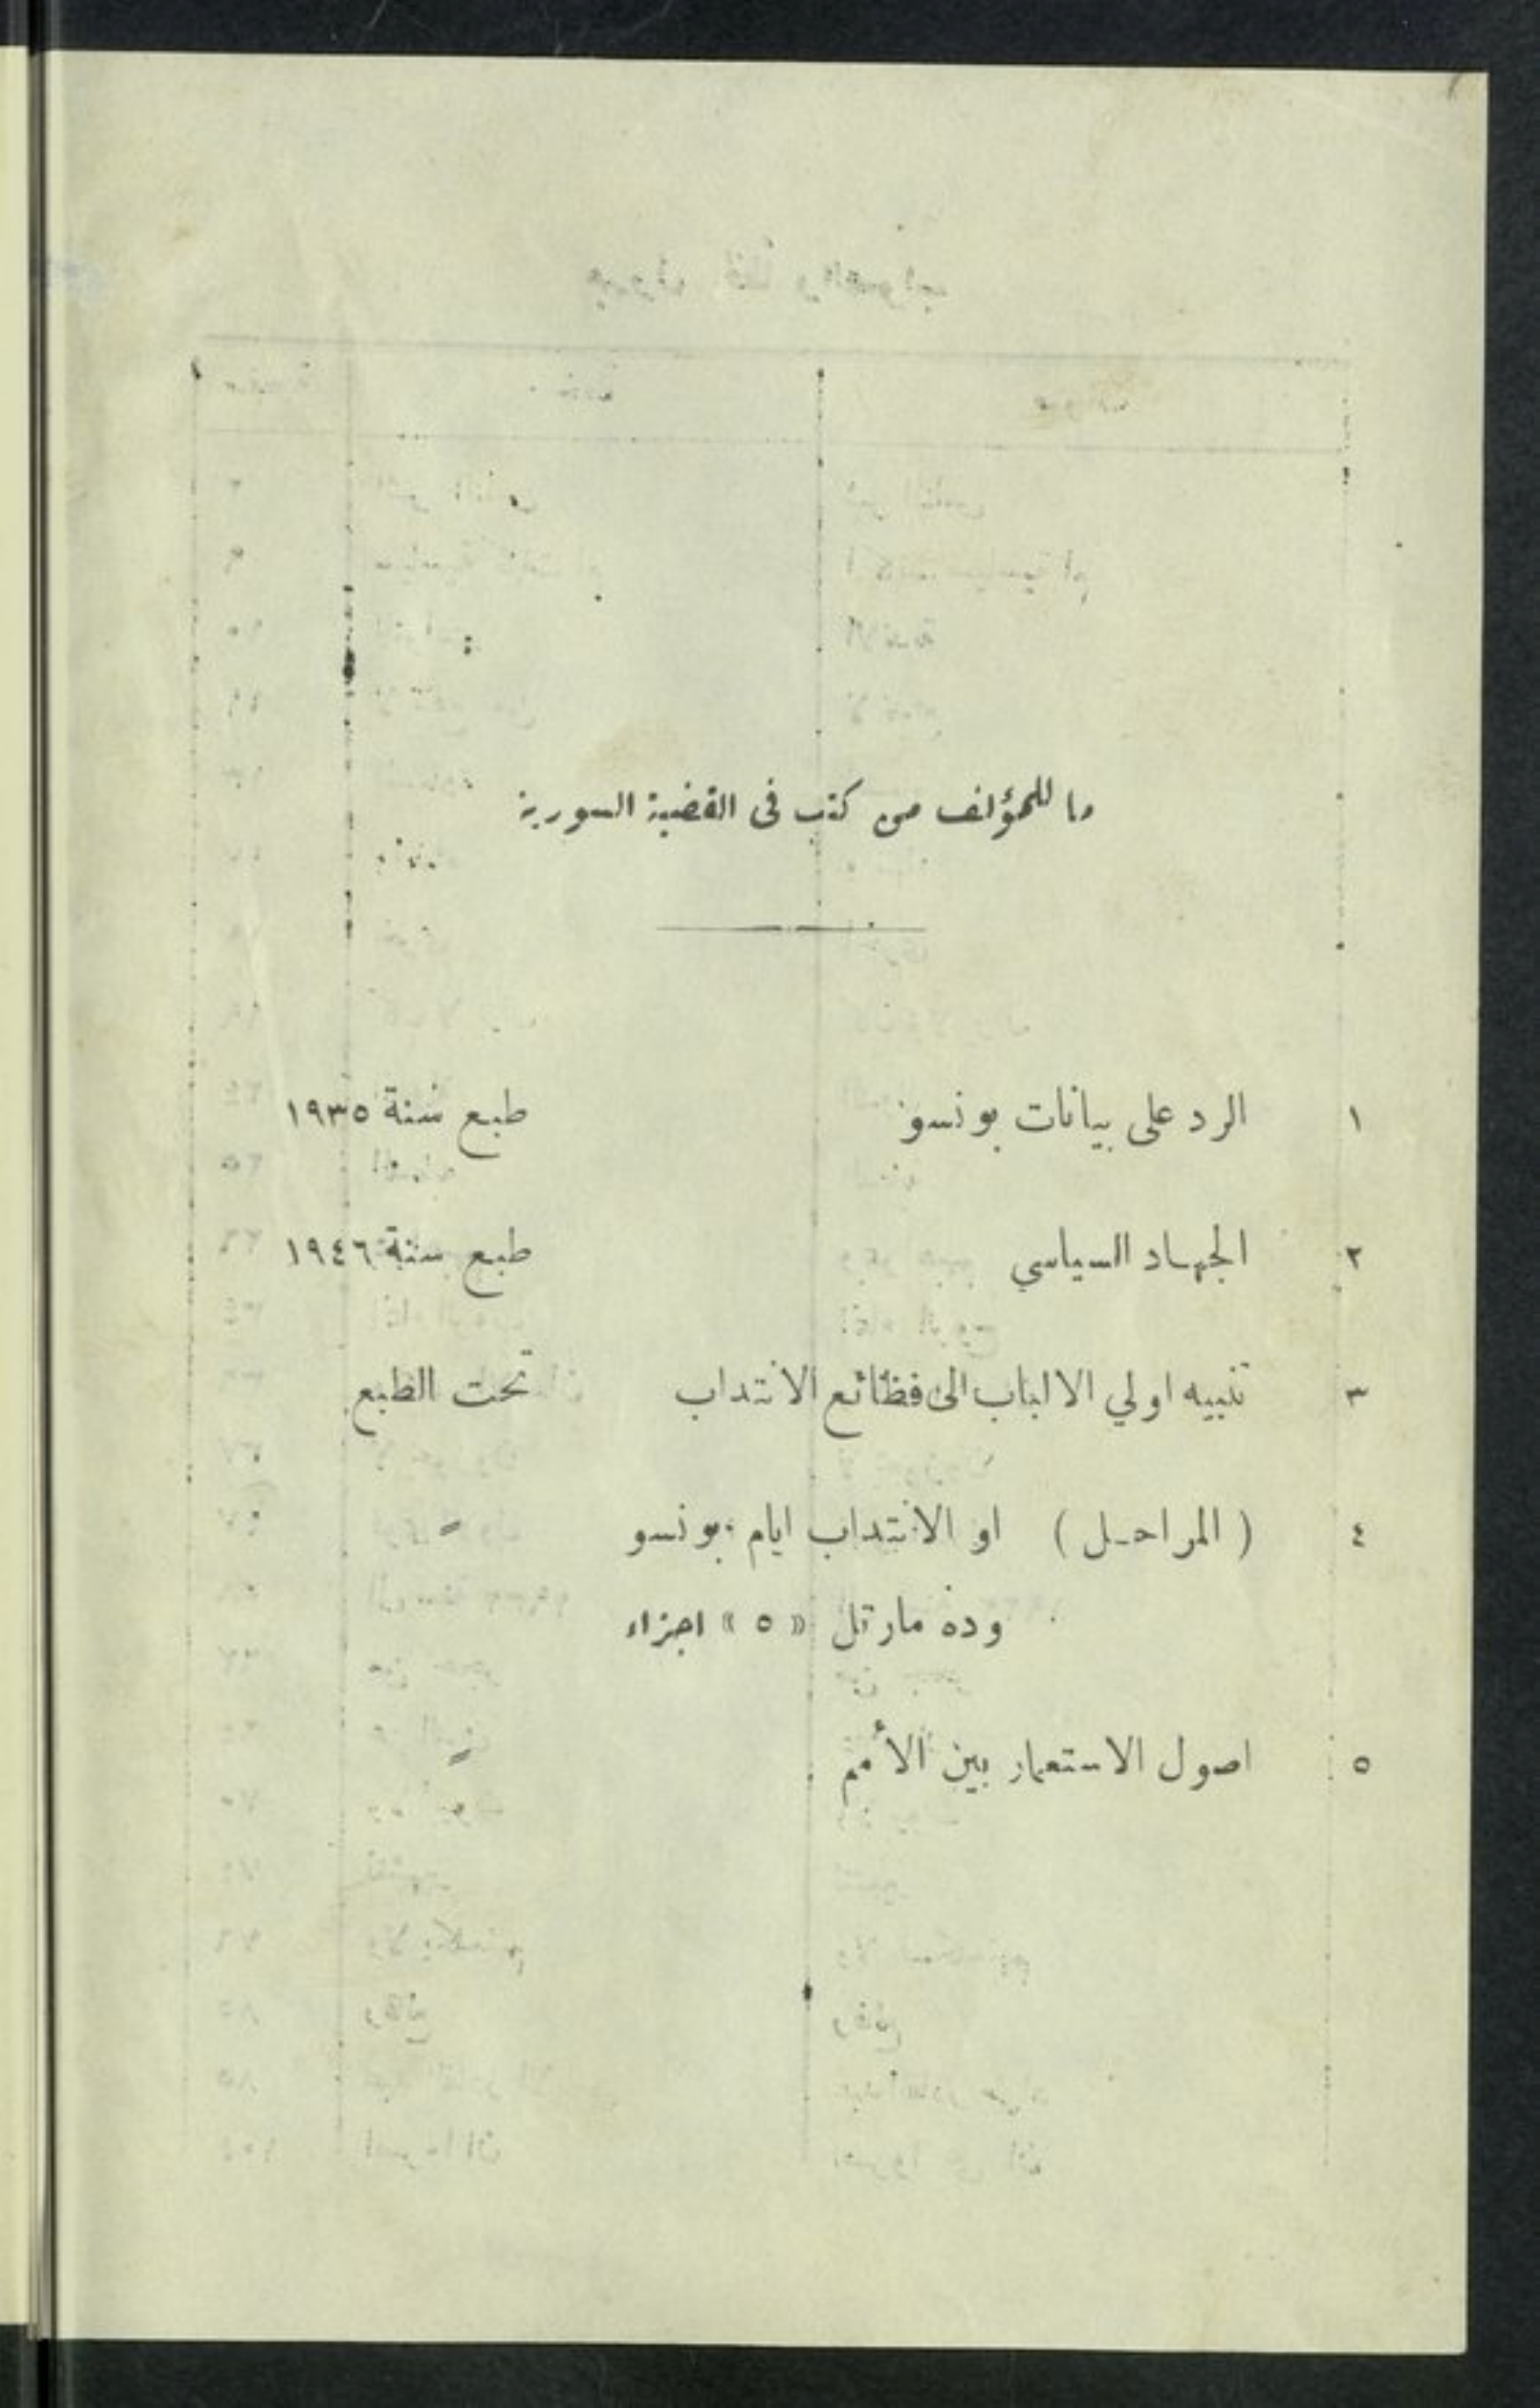 ما للمؤلف من كتب في القضية السورية
١ الرد على بيانات بونسو طبع سنة ١٩٣٥
٢ الجهاد السياسي طبع سنة ١٩٤٦
٣ تنبيه اولي الالباب الى فظائع الانتداب تحت الطبع
٤ ( المراحل ) او الانتداب ايام بونسو »
وده مارتل « ٥ » اجزاء
٥ اصول الاستعمار بين الأمم »